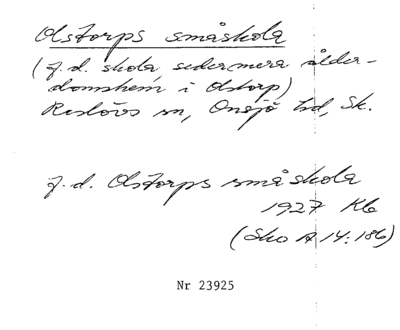 Olstorps småskola
(f.d. skola, sedermera ålder-
domshem i Olstorp)
Reslövs sn, Onsjö hd, Sk.
f.d. Olstorps småskola
1927 Kb
(Sko A 14:186)
Nr 23925